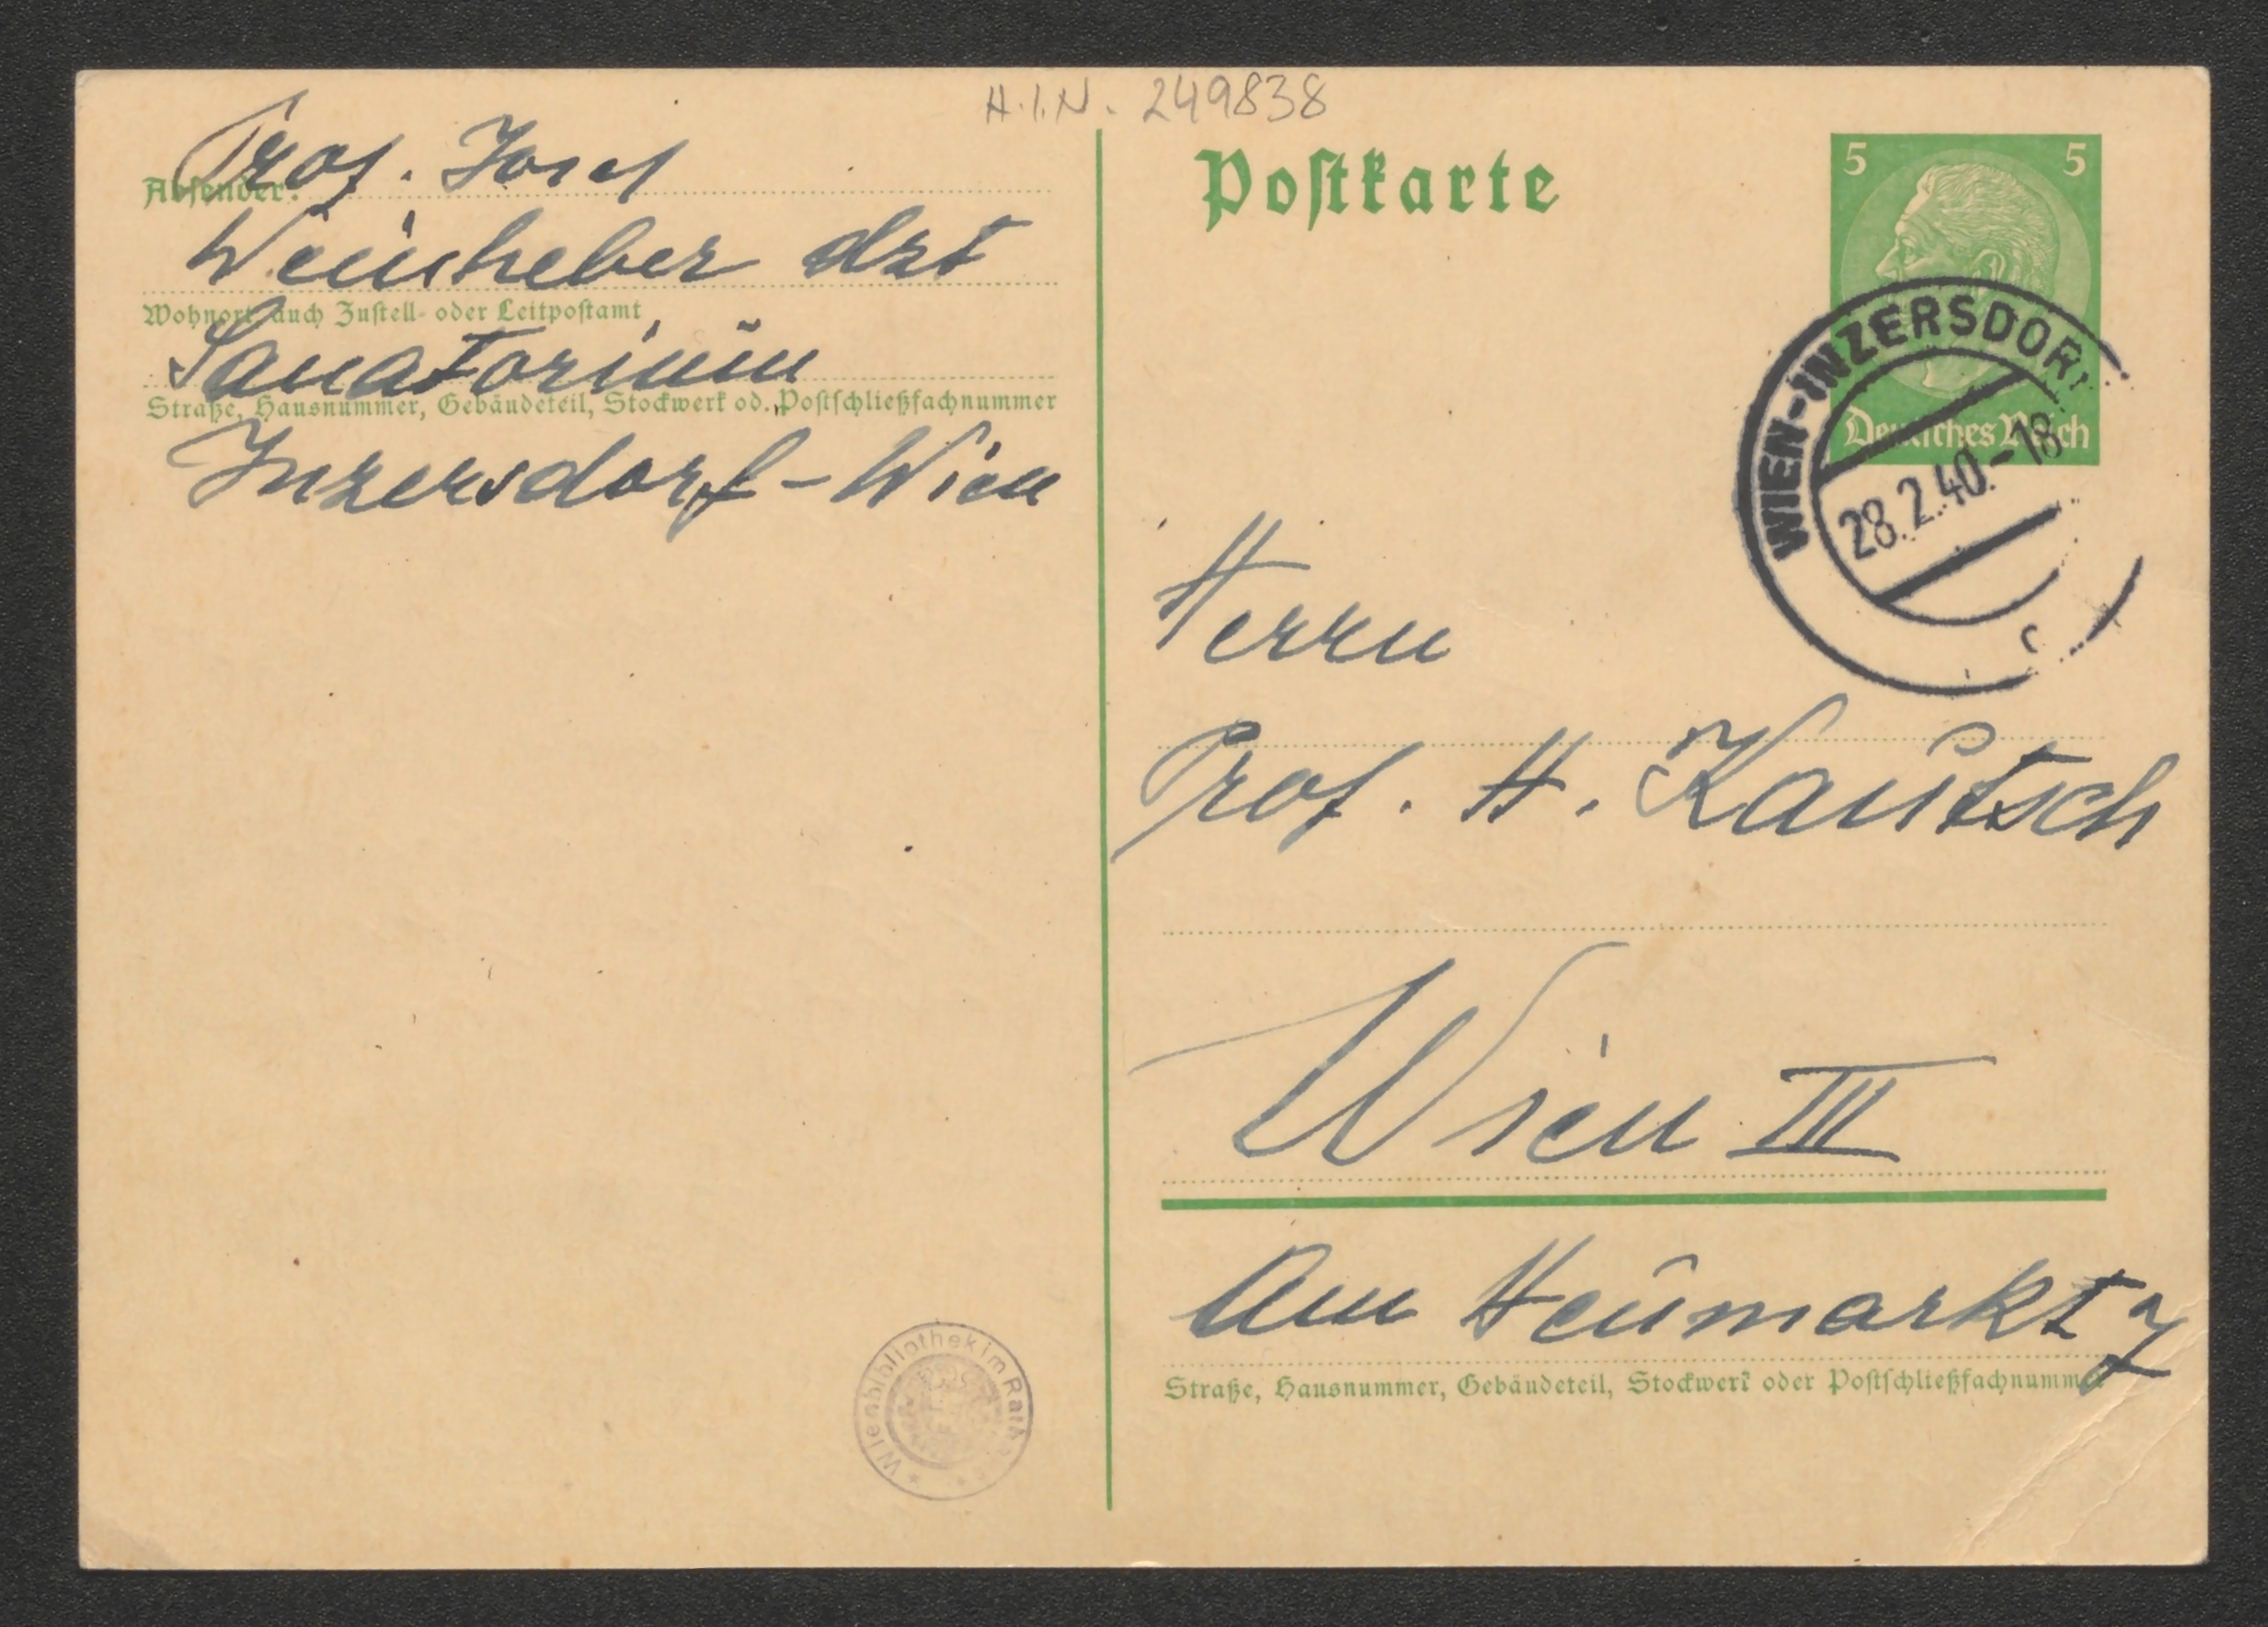 H.I.N. 249838
Prof. Josef
Absender:
Weinheber dzt
Wohnort, auch Zustell- oder Leitpostamt
Sanatorium
Straße, Hausnummer, Gebäudeteil, Stockwerk od. Postschließfachnummer
Inzersdorf-Wien
Postkarte
5 5
Deutsches Reich
WIEN-INZERSDORF
28.2.40.-18
c
Herrn
Prof. H. Kautsch
Wien III
Am Heumarkt 7
Straße, Hausnummer, Gebäudeteil, Stockwerk oder Postschließfachnummer
Wienbibliothek im Rath